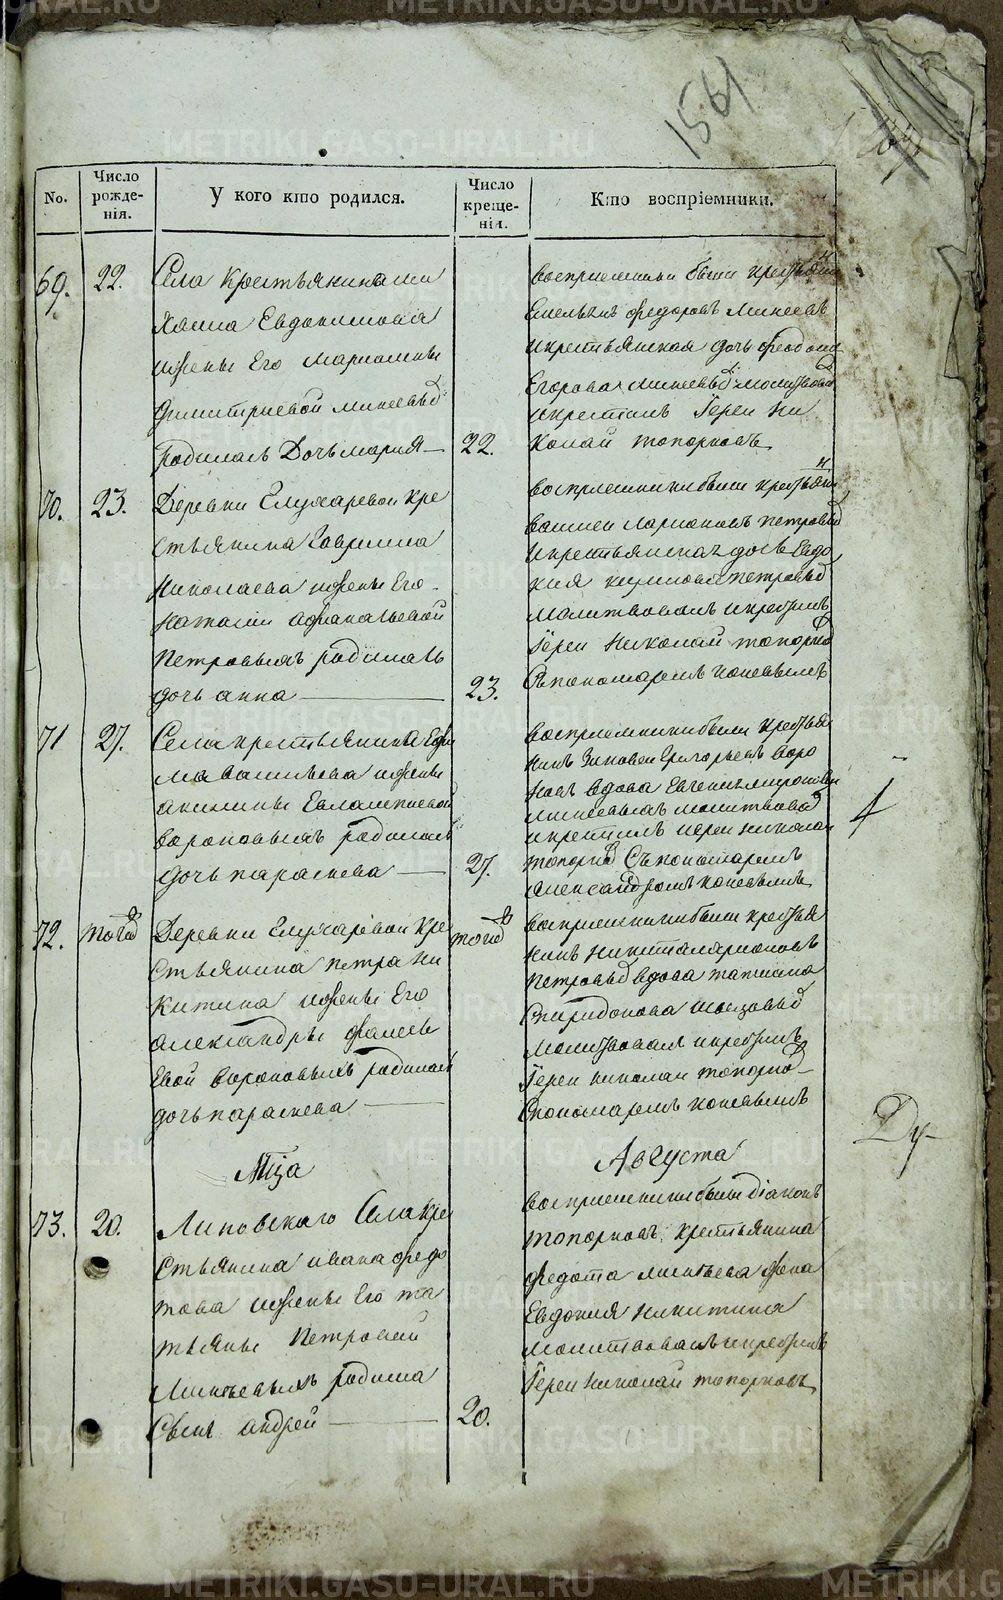 1561
No.
Число рожде-нія.
У кого кто родился.
Число креще-нія.
Кто воспріемники.
69.
22.
Села крестьянина
Евдокимова
ижены Его Мариамны
Димитриевой Минеевы
родилась Дочь мария
22.
восприемники были крестьянин
федоровъ Минеевъ
икрестьянская дочь
Егорова Минеевы молитвовал
икрестилъ Іереи Ни
колай топорковъ
70.
23.
Деревни Глухаревои кре
стьянина Гаврила
Николаева ижены Его
Наталии
Петровыхъ родилась
дочь анна
23.
восприемники были крестьянин
Ларионъ петровы
икрестьянская дочь Евдо
кия петровы
Молитвовалъ икрестилъ
Іереи Николай топорко
Спономаремъ
71
27.
Села крестьянина Ефи
ма васильева ижены
Евлампиевой
вороновыхъ родилась
дочь параскева
27.
восприемники были крестья
нинъ Зиновеи Григорьевъ воро
новъ вдова Евгения миронова
Минеевыхъ молитвовал
икрестилъ иереи николаи
топорко Съпономаремъ
александромъ
72.
тогод
Деревни Глухаревои кре
стьянина петра ни
китина ижены Его
александры
Евой вороновыхъ родилась
дочь параскева
тогод
восприемники были крестья
нинъ никита ларионовъ
петровы вдова татиана
Спиридонова
Молитвовалъ икрестилъ
Іереи николаи топорко
Спономаремъ
Мца
Августа
73.
20.
Липовскаго Села кре
стьянина ивана федо
това ижены Его та
тьяны Петровой
родила
Сынъ андрей
20.
восприемники были діаконъ
топорковъ, крестьянина
федота жена
Евдокия никитина
Молитвовалъ икрестилъ
Іереи николай топорковъ